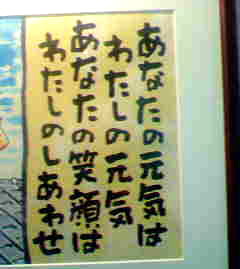 あなたの元気は
わたしの元気
あなたの笑顔は
わたしのしあわせ